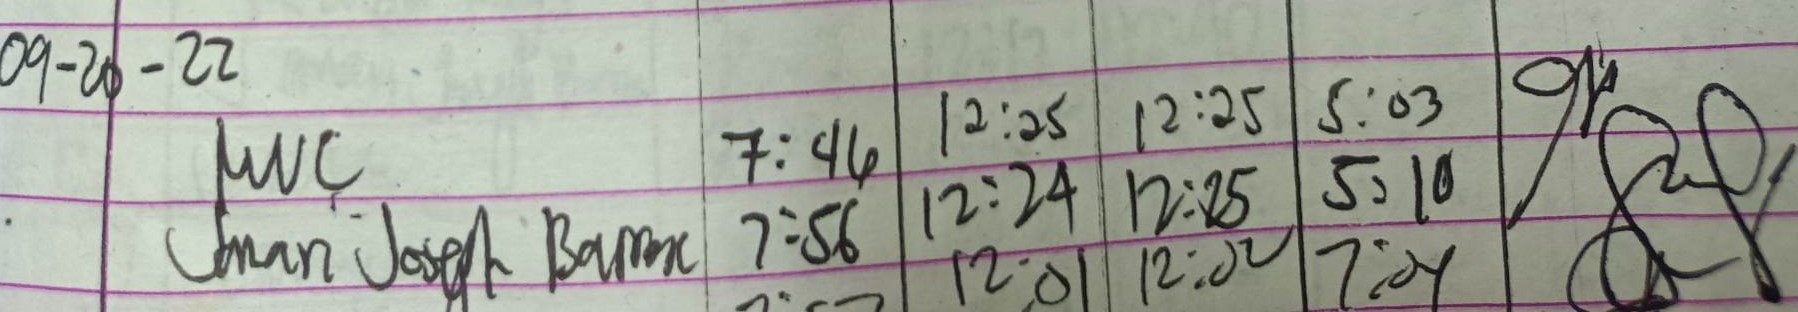 09-20-22
MVC 7:46 12:25 12:25 5:03
Joseph 7:56 12:24 12:25 5:10
12:01 12:02 7:04